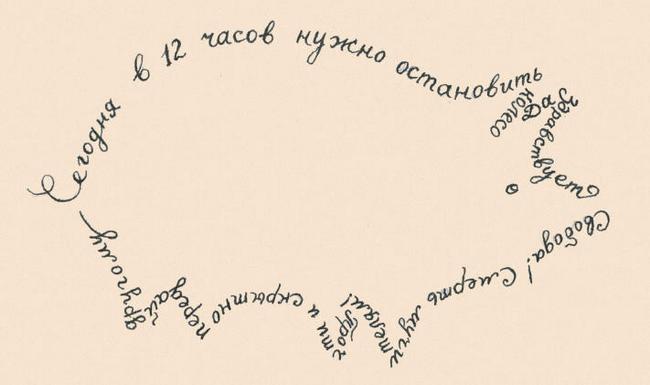 Сегодня в 12 часов нужно остановить колесо
Да здравствует
Свобода! Смерть мучителям! Прочти и скрытно передай другому